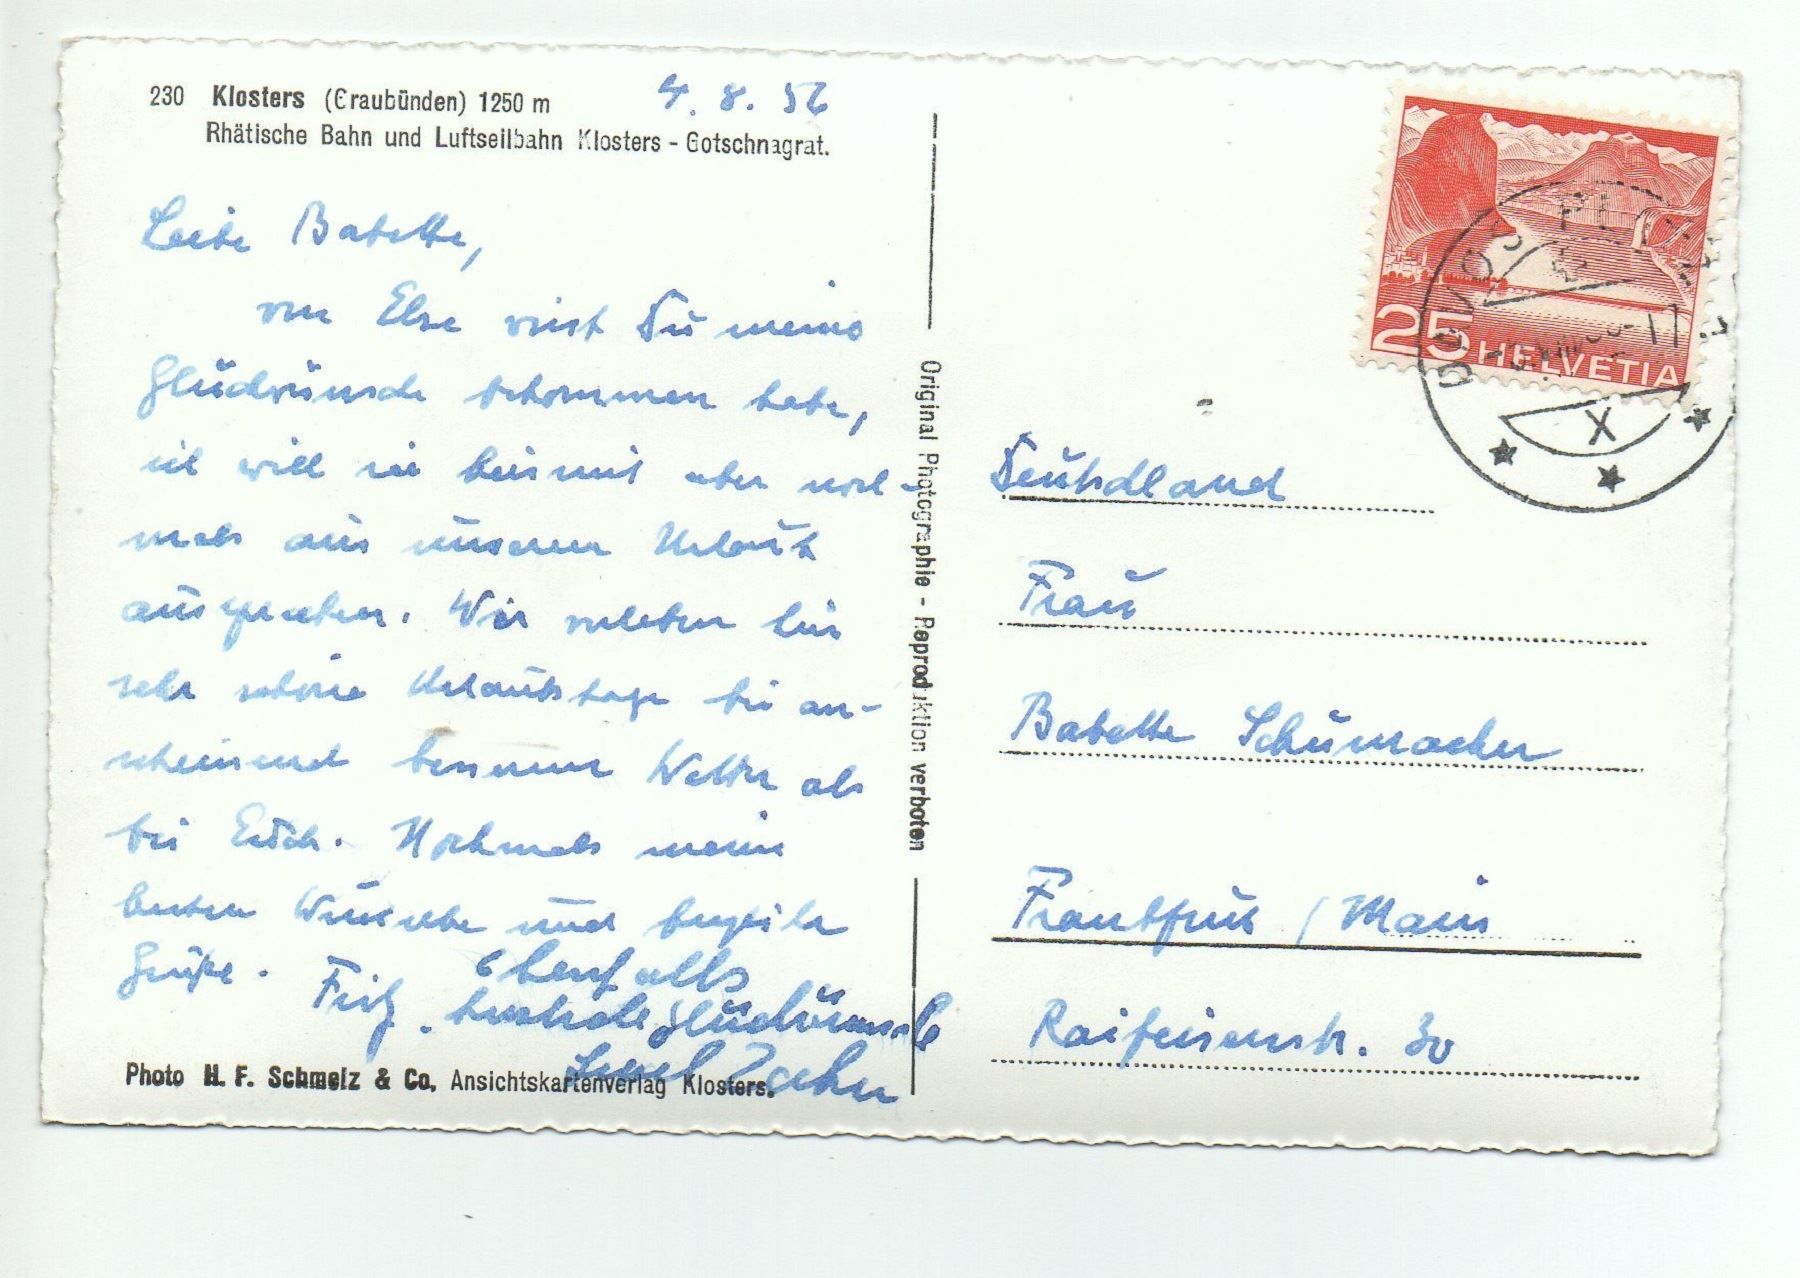 230 Klosters (Graubünden) 1250 m
Rhätische Bahn und Luftseilbahn Klosters - Gotschnagrat.
4. 8. 56
Liebe Babette,
von Else wirst Du meine
Glückwünsche bekommen haben,
ich will sie hiermit aber noch-
mals aus unserem Urlaub
aussprechen. Wir verleben hier
sehr schöne Urlaubstage bei an-
scheinend besserem Wetter als
bei Euch. Nochmals meine
besten Wünsche und herzliche
Grüße. Fritz.
Ebenfalls
herzliche Glückwünsche
Photo H. F. Schmelz & Co. Ansichtskartenverlag Klosters.
Original Photographie - Reproduktion verboten
25 HELVETIA
DAVOS PLATZ
X
Deutschland
Frau
Babette Schumacher
Frankfurt / Main
Raifeisenstr. 30